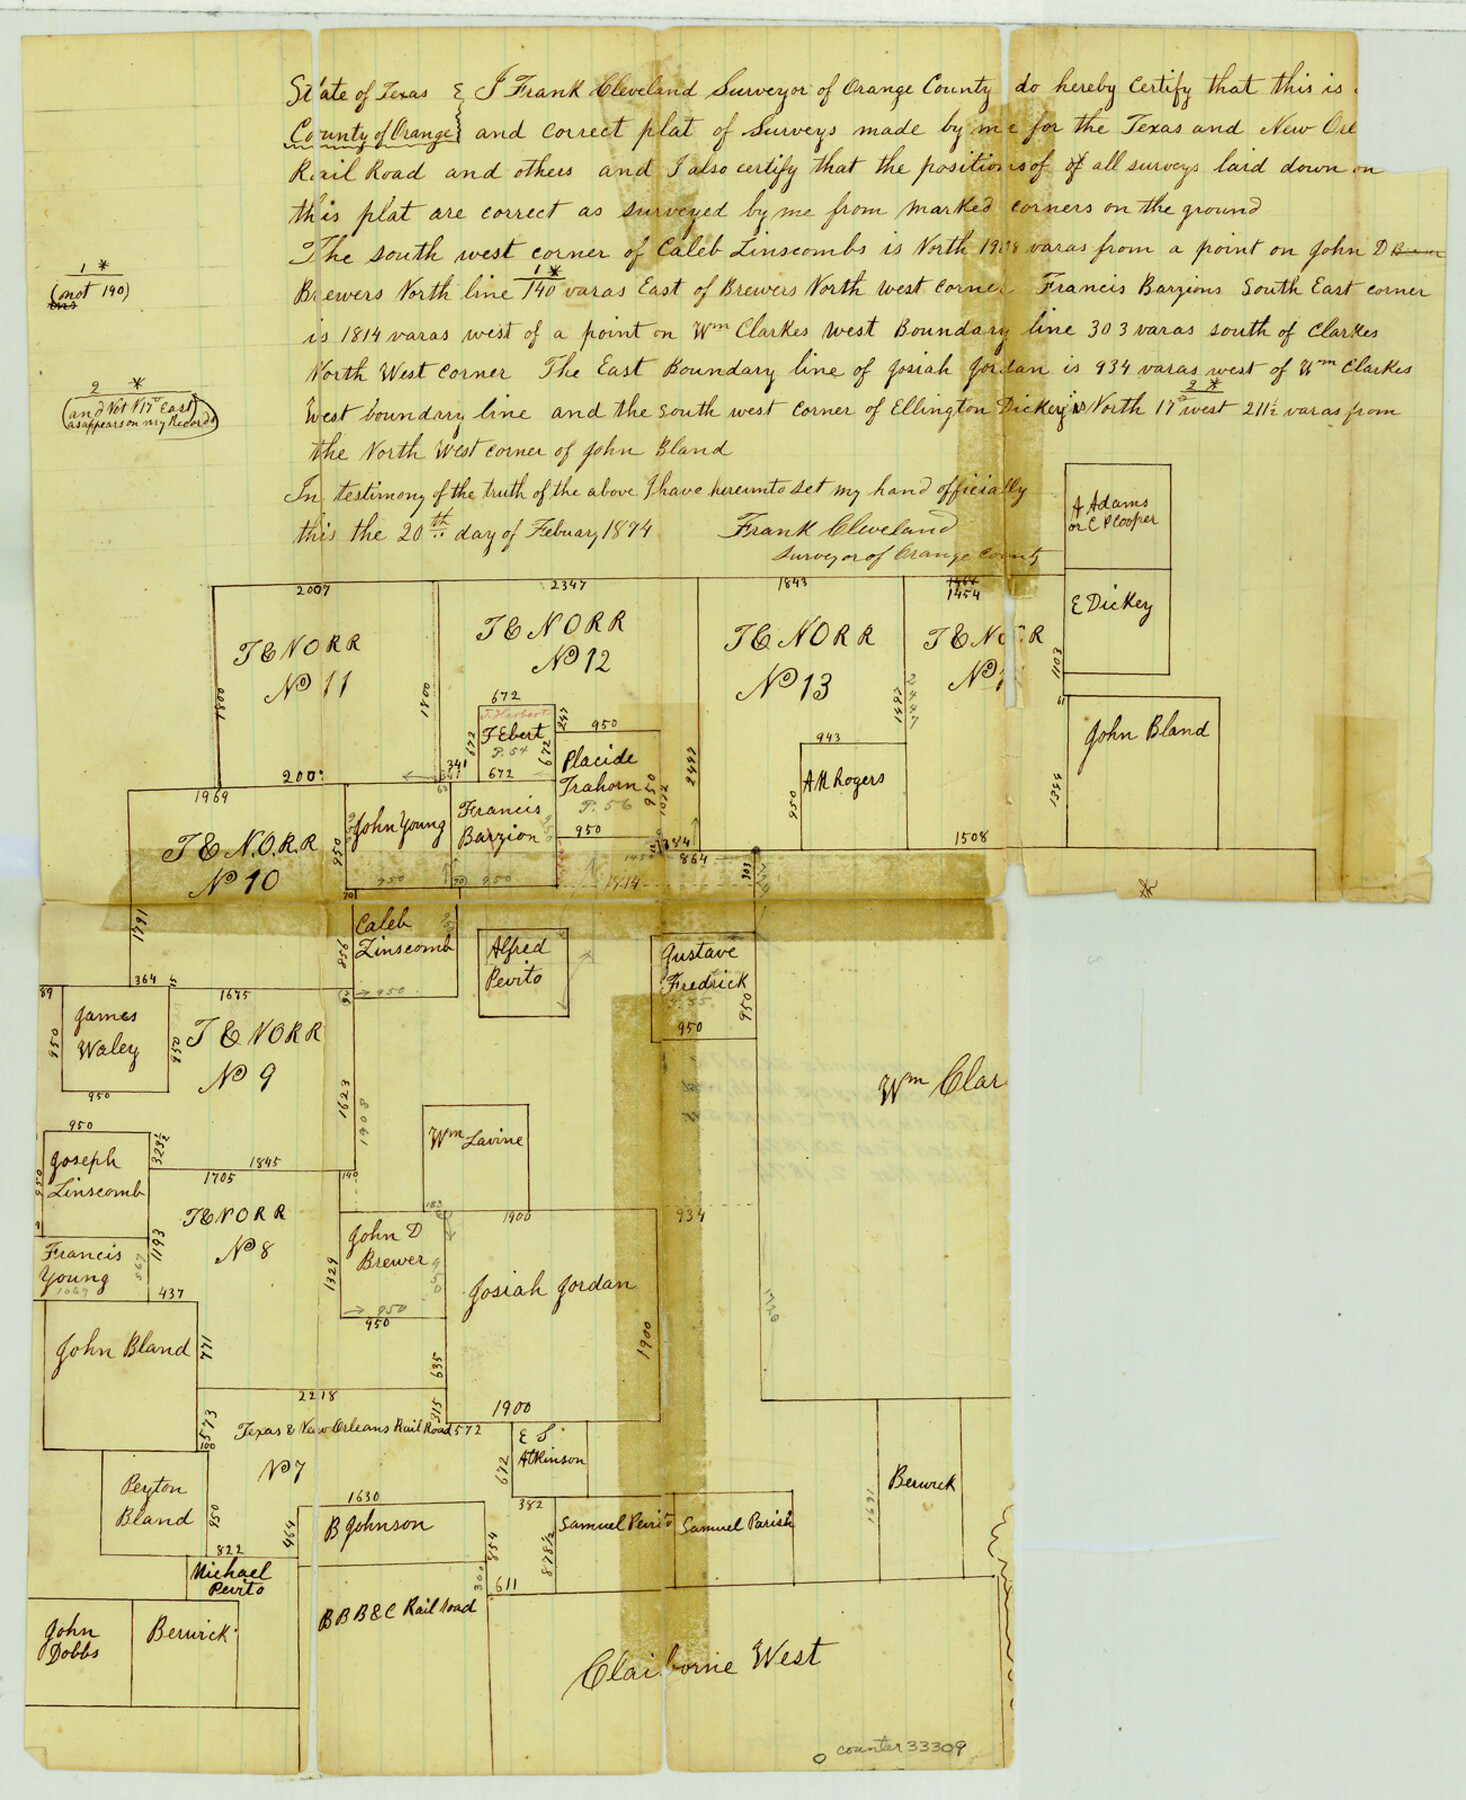 State of Texas & I Frank Cleveland Surveyor of Orange County do hereby certify that this is
County of Orange and correct plat of Surveys made by me for the Texas and New Orl
Rail Road and others and I also certify that the positions of of all surveys laid down on
this plat are correct as surveyed by me from marked corners on the ground
The south west corner of Caleb Linscombs is North 1908 varas from a point on John D
1 *
Brewers North line 140 varas East of Brewers North west corner Francis Barzions South East corner
is 1814 varas west of a point on Wm Clarkes west Boundary line 303 varas south of Clarkes
North West corner The East Boundary line of Josiah Jordan is 934 varas west of Wm Clarkes
2 *
West boundrry line and the south west corner of Ellington Dickey is North 17° west 211½ varas from
the North West corner of John Bland
In testimony of the truth of the above I have hereunto set my hand officially
this the 20th day of Febuary 1874 Frank Cleveland
Surveyor of Orange County
1 *
(not 190)
2 *
(and Not N17° East
as appears on my Records)
A Adams
or C P Cooper
E Dickey
2007
2347
1843
1454
T E N O R R
No 11
T E N O R R
No 12
T E N O R R
No 13
T E N O R R
No 1
1800
1800
1403
2447
1497
2497
672
J. Herbert
F Ebert
P. 54
672
672
672
247
341
950
Placide
Trahorn
P. 56
950
950
1072
943
A R Rogers
950
John Bland
1354
1508
200
1969
T E N.O.R.R
No 10
950
John Young
950
Francis
Barzion
950
384
864
1814
303
1791
364
70
856
Caleb
Linscomb
950
Alfred
Pevito
Gustave
Fredrick
P. 55
950
950
89
James
Waley
950
950
950
1675
T E N O R R
No 9
1623
1908
Wm Clar
Wm Lavine
183
950
Joseph
Linscomb
950
323½
1845
1705
T E N O R R
No 8
140
1193
567
Francis
Young
1067
437
1329
John D
Brewer
950
950
950
1900
Josiah Jordan
1900
934
John Bland
771
635
2218
315
1900
573
100
Texas & New Orleans Rail Road
572
No 7
E S
Atkinson
672
Peyton
Bland
950
822
464
1630
B Johnson
854
382
878½
Samuel Pevito
Samuel Parish
1691
Berwick
Michael
Pevito
300
611
B B B & C Rail Road
John
Dobbs
Berwick
Claiborne West
counter 33309